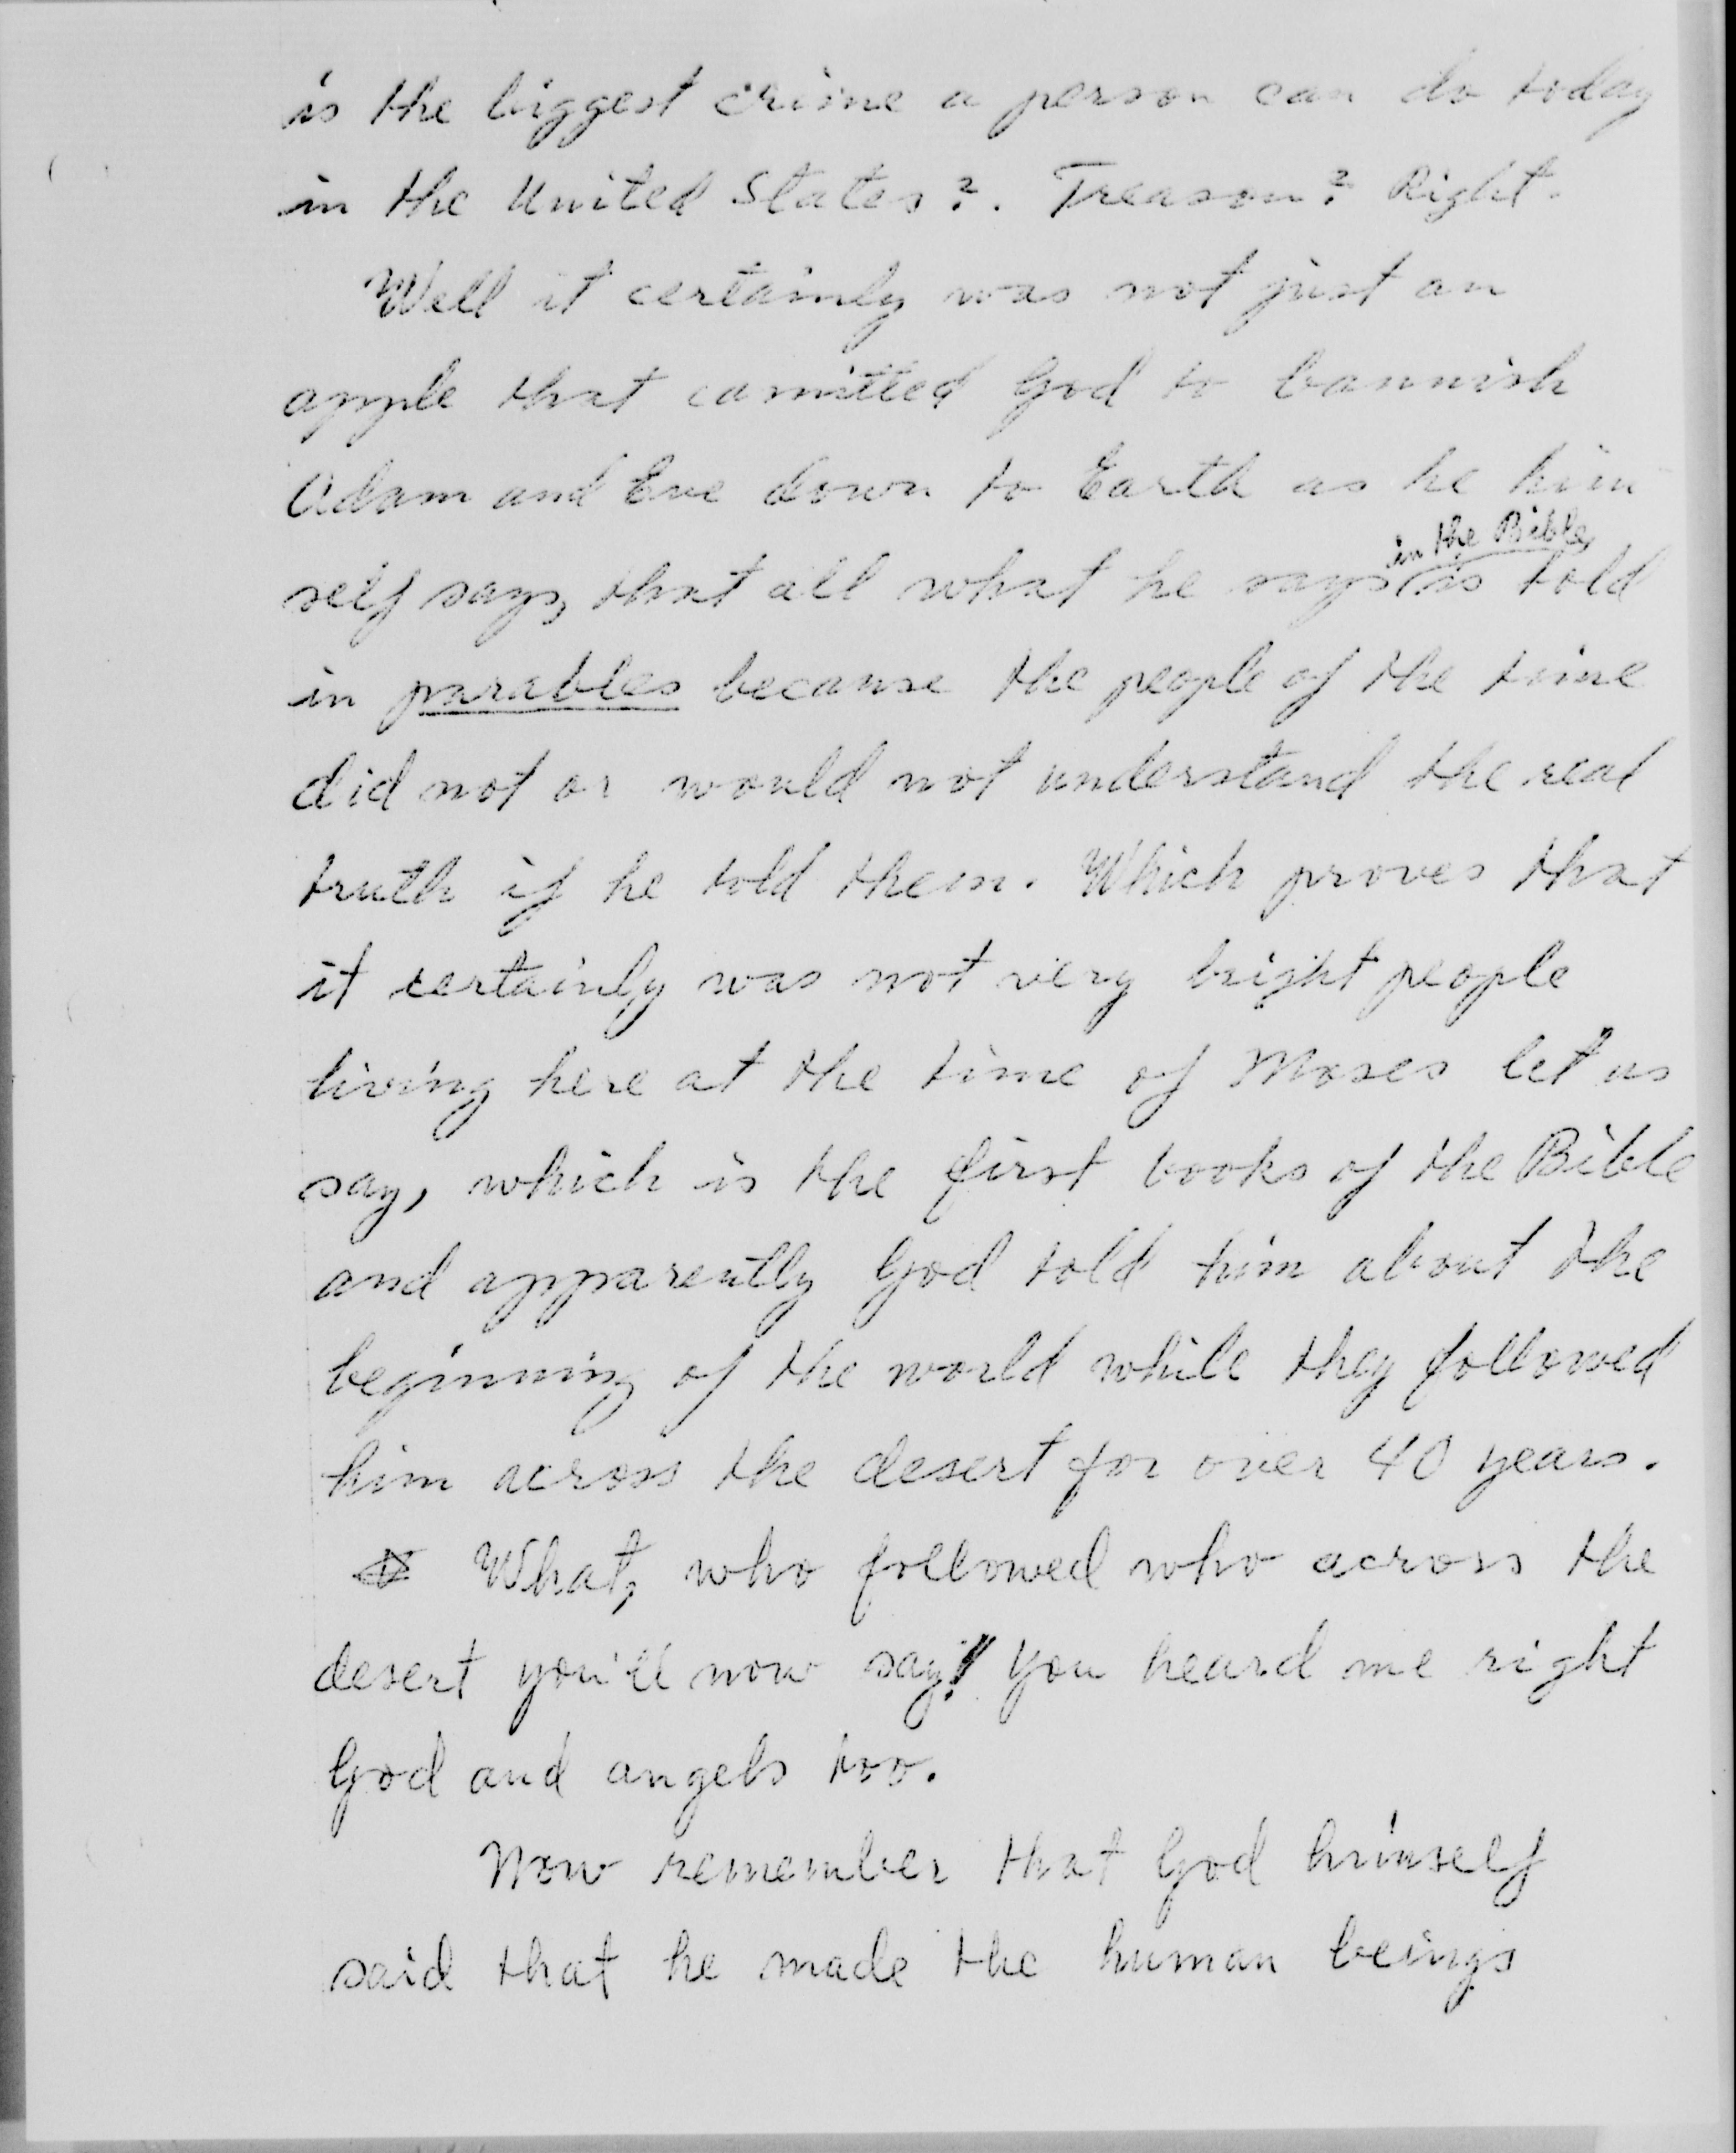 is the biggest crime a person can do today
in the United States?. Treason? Right.
Well it certainly was not just an
apple that camitted God to bannish
Adam and Eve down to Earth as he him
self says, that all what he says in the Bible is told
in parables because the people of the time
did not or would not understand the real
truth if he told them. Which proves that
it certainly was not very bright people
living here at the time of Moses let us
say, which is the first books of the Bible
and apparently God told him about the
beginning of the world while they followed
him across the desert for over 40 years.
What, who followed who across the
desert you'll now say! You heard me right
God and angels too.
Now remember that God himself
said that he made the human beings